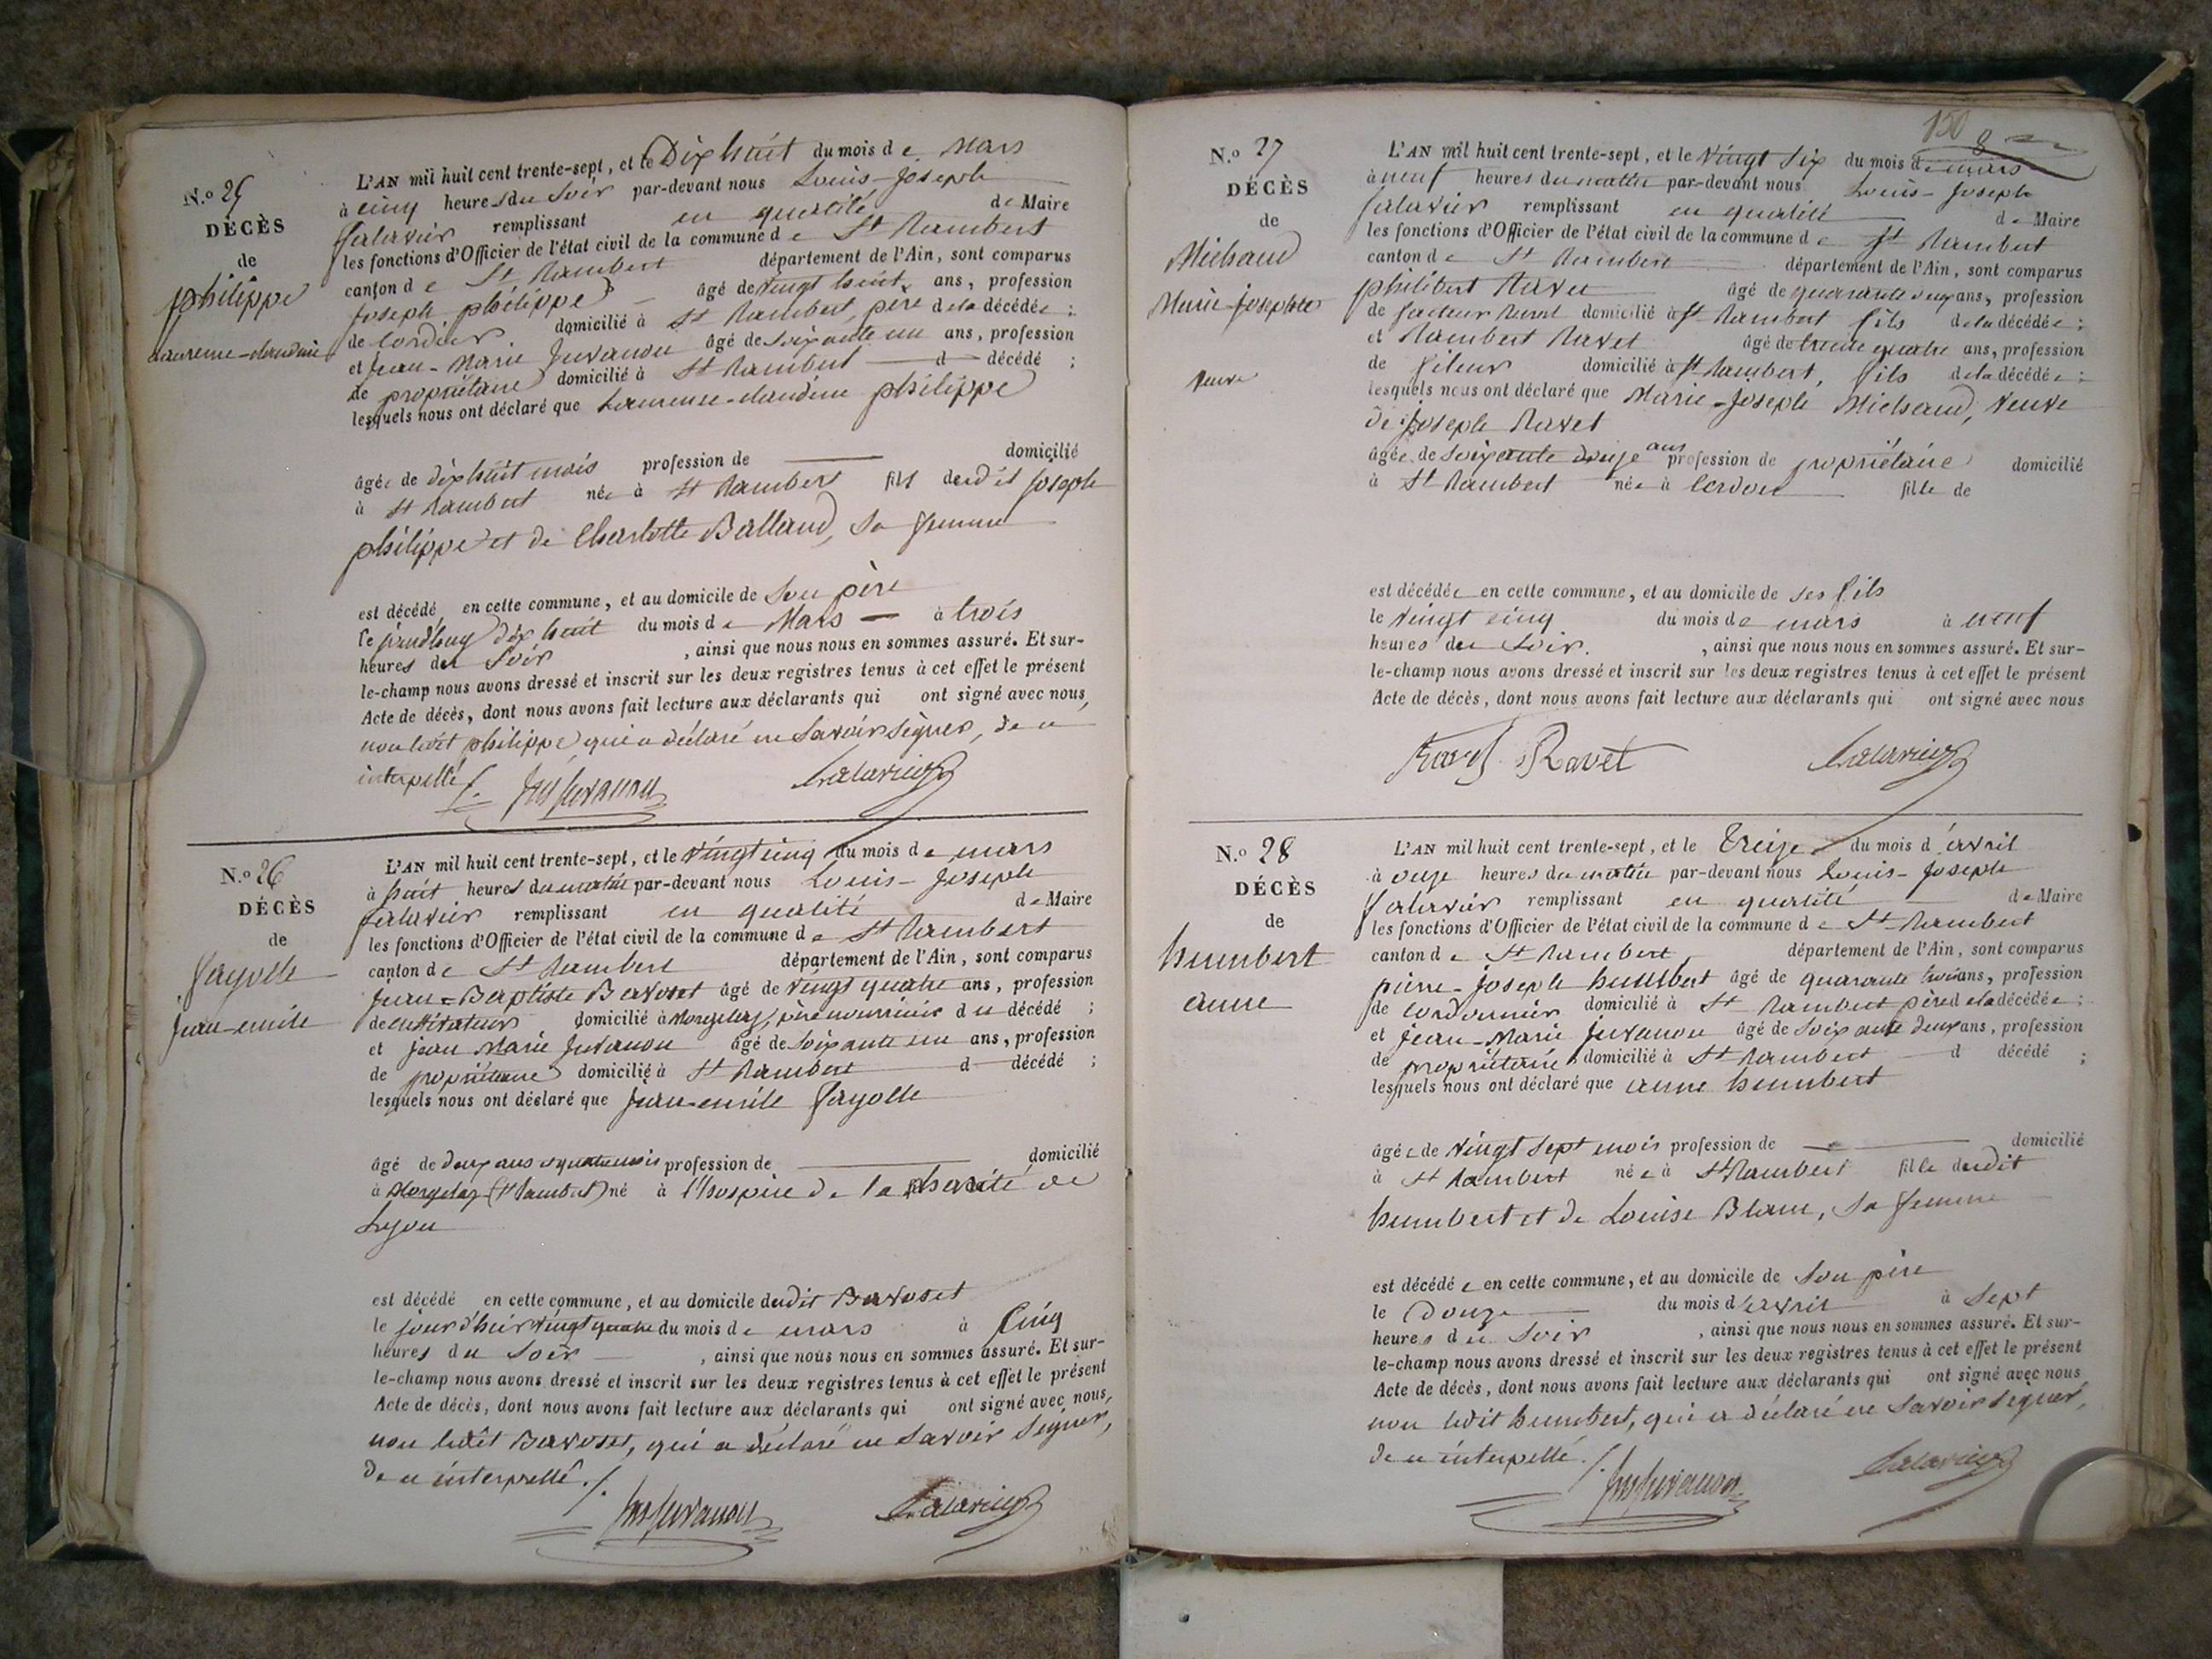 N.o 25
DÉCÈS
de
philippe
Laurence-claudine
L'AN mil huit cent trente-sept, et le Dix huit du mois de Mars
à cinq heures du soir par-devant nous Louis-Joseph
falavier remplissant en qualité de Maire
les fonctions d'Officier de l'état civil de la commune de St Rambert
canton de St Rambert département de l'Ain, sont comparus
Joseph philippe âgé de vingt huit ans, profession
de cordier domicilié à St Rambert, père de la décédée ;
et Jean-Marie Juvanon âgé de soixante un ans, profession
de propriétaire domicilié à St Rambert d décédé ;
lesquels nous ont déclaré que Laurence-claudine philippe
âgée de dix huit mois profession de domicilié
à St Rambert née à St Rambert fille dudit joseph
philippe et de Charlotte Balland, sa femme
est décédé en cette commune, et au domicile de son père
le jourd'huy dix huit du mois de Mars à trois
heures du soir, ainsi que nous nous en sommes assuré. Et sur-
le-champ nous avons dressé et inscrit sur les deux registres tenus à cet effet le présent
Acte de décès, dont nous avons fait lecture aux déclarants qui ont signé avec nous,
non ledit philippe qui a déclaré ne savoir signer, de ce
interpellé /.
N.o 26
DÉCÈS
de
fayolle
jean-emile
L'AN mil huit cent trente-sept, et le vingt cinq du mois de mars
à huit heures du matin par-devant nous Louis-Joseph
falavier remplissant en qualité de Maire
les fonctions d'Officier de l'état civil de la commune de St Rambert
canton de St Rambert département de l'Ain, sont comparus
jean-Baptiste Bavoset âgé de vingt quatre ans, profession
de cultivateur domicilié à Morgelas, père nourricier du décédé ;
et jean Marie Juvanon âgé de soixante un ans, profession
de propriétaire domicilié à St Rambert d décédé ;
lesquels nous ont déclaré que jean-emile fayolle
âgé de deux ans et quatre mois profession de domicilié
à Morgelas (St Rambert) né à l'hospice de la charité de
Lyon
est décédé en cette commune, et au domicile dudit Bavoset
le jour d'hier vingt quatre du mois de mars à cinq
heures du soir, ainsi que nous nous en sommes assuré. Et sur-
le-champ nous avons dressé et inscrit sur les deux registres tenus à cet effet le présent
Acte de décès, dont nous avons fait lecture aux déclarants qui ont signé avec nous,
non ledit Bavoset, qui a déclaré ne savoir signer,
de ce interpellé. /.
150
N.o 27
DÉCÈS
de
Michaud
Marie-josephte
veuve
L'AN mil huit cent trente-sept, et le vingt six du mois de mars
à neuf heures du matin par-devant nous Louis-Joseph
falavier remplissant en qualité de Maire
les fonctions d'Officier de l'état civil de la commune de St Rambert
canton de St Rambert département de l'Ain, sont comparus
philibert Ravet âgé de quarante deux ans, profession
de facteur rural domicilié à St Rambert fils de la décédée ;
et Rambert Ravet âgé de trente quatre ans, profession
de fileur domicilié à St Rambert, fils de la décédée ;
lesquels nous ont déclaré que Marie-Joseph Michaud, veuve
de joseph Ravet
âgée de soixante douze ans profession de propriétaire domicilié
à St Rambert née à Cerdon fille de
est décédée en cette commune, et au domicile de ses fils
le vingt cinq du mois de mars à neuf
heures du soir., ainsi que nous nous en sommes assuré. Et sur-
le-champ nous avons dressé et inscrit sur les deux registres tenus à cet effet le présent
Acte de décès, dont nous avons fait lecture aux déclarants qui ont signé avec nous
Ravet Ravet
N.o 28
DÉCÈS
de
humbert
anne
L'AN mil huit cent trente-sept, et le Treize du mois d'avril
à onze heures du matin par-devant nous Louis-Joseph
falavier remplissant en qualité de Maire
les fonctions d'Officier de l'état civil de la commune de St Rambert
canton de St Rambert département de l'Ain, sont comparus
pierre-joseph humbert âgé de quarante trois ans, profession
de cordonnier domicilié à St Rambert père de la décédée ;
et jean-Marie Juvanon âgé de soixante deux ans, profession
de propriétaire domicilié à St Rambert d décédé ;
lesquels nous ont déclaré que anne humbert
âgée de vingt sept mois profession de domicilié
à St Rambert née à St Rambert fille dudit
humbert et de Louise Blanc, sa femme
est décédée en cette commune, et au domicile de son père
le Douze du mois d'avril à sept
heures du soir, ainsi que nous nous en sommes assuré. Et sur-
le-champ nous avons dressé et inscrit sur les deux registres tenus à cet effet le présent
Acte de décès, dont nous avons fait lecture aux déclarants qui ont signé avec nous
non ledit humbert, qui a déclaré ne savoir signer,
de ce interpellé. /.